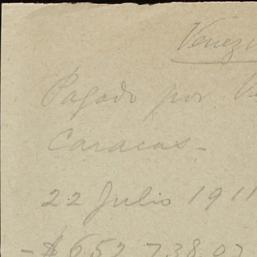 Venez
Pagado por V
Caracas-
22 Julio 1911
-$652,738.07